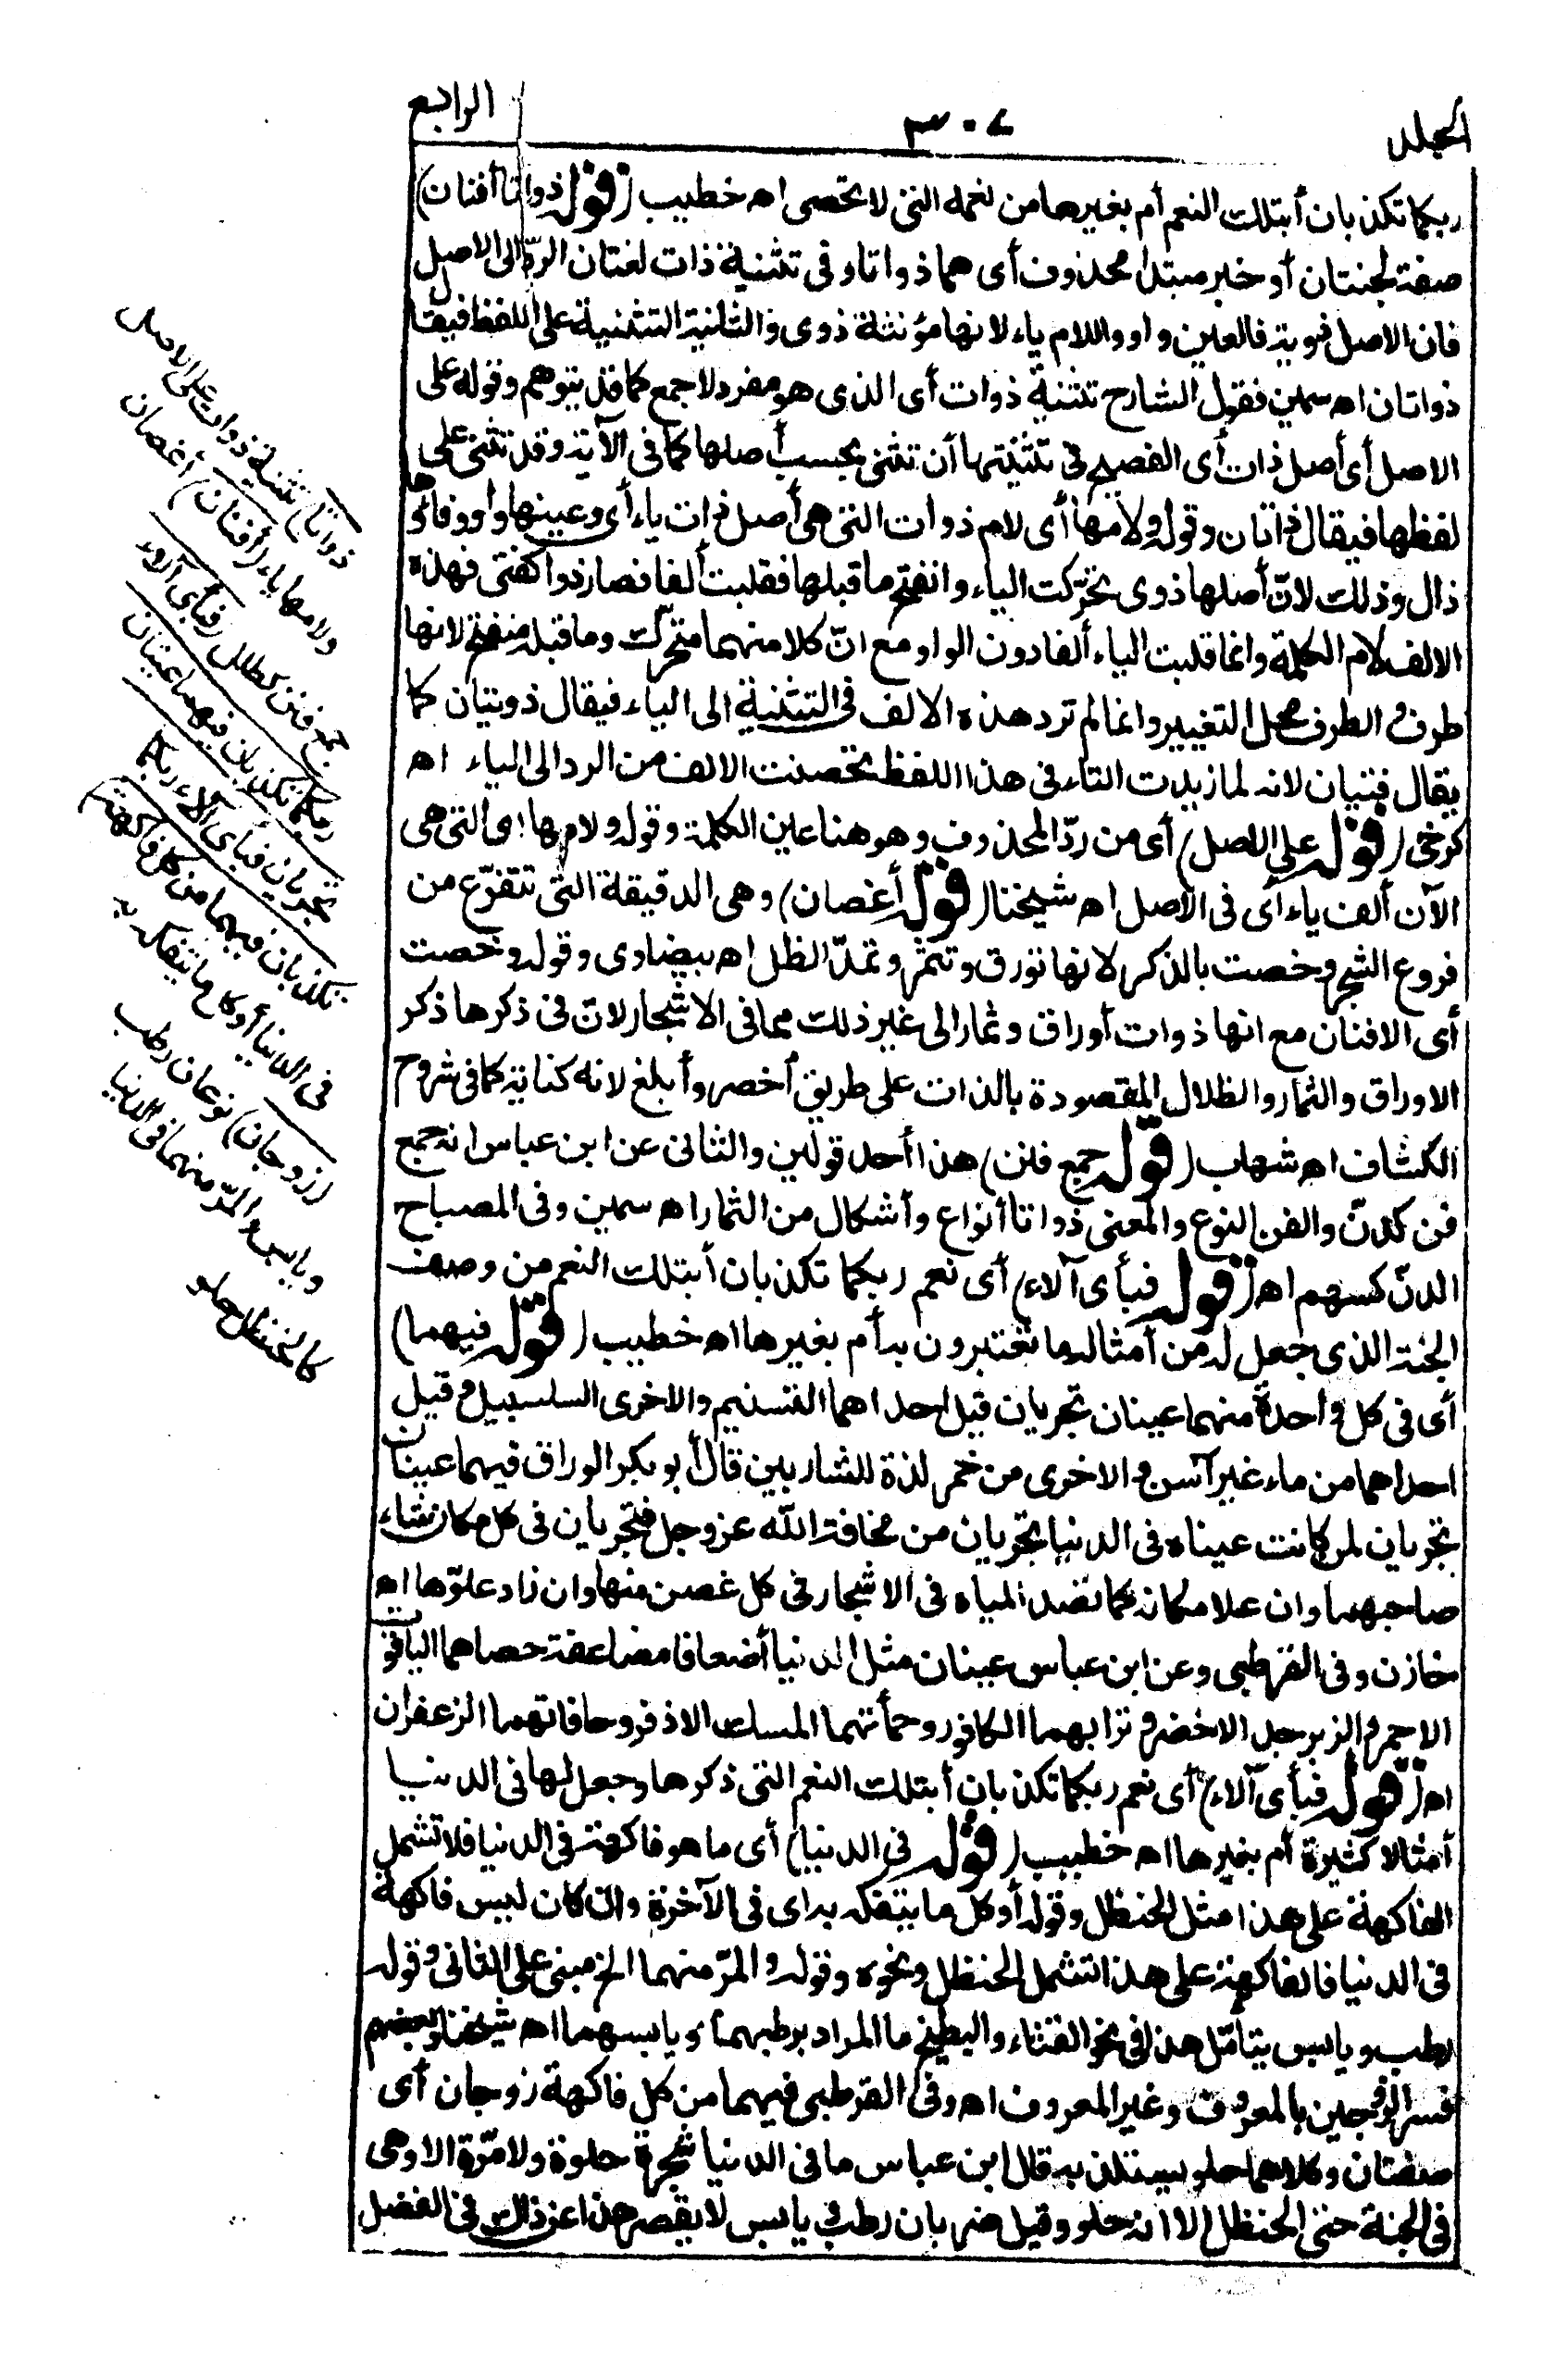 المجلد
٣٠٧
الرابع
ربكما تكذبان أبتلك النعم أم بغيرها من نعمه التى لا تحصى اه خطيب (قوله ذواتا أفنان)
صفة لجنتان أو خبر مبتدا محذوف أى هما ذواتا وفى تثنية ذات لغتان الردّ الى الاصل
فان الاصل ذوية فالعين واو واللام ياء لانها مؤنثة ذوى والثانية التثنية على اللفظ فيقال
ذواتان اه سمين فقول الشارح تثنية ذوات أى الذى هو مفرد لا جمع كما قد يتوهم وقوله على
الاصل أى أصل ذات أى الفصيح فى تثنيتها أن تثنى بحسب أصلها كما فى الآية وقد تثنى على
لفظها فيقال ذاتان وقوله ولامها أى لام ذوات التى هى أصل ذات ياء أى وعينها واو وفاؤها
ذال وذلك لانّ أصلها ذوى تحرّكت الياء وانفتح ما قبلها فقلبت ألفا فصار ذوا كفتى فهذه
الالف لام الكلمة وانما قلبت الياء ألفا دون الواو مع انّ كلا منهما متحرّك وما قبله منفتح لانها
طرف والطرف محل التغيير وانما لم ترد هذه الالف فى التثنية الى الياء فيقال ذويتان كما
يقال فتيان لانه لما زيدت التاء فى هذا اللفظ تحصنت الالف من الرد الى الياء اه
كرخى (قوله على الاصل) أى من ردّ المحذوف وهو هنا عين الكلمة وقوله ولامها أى التى هى
الآن ألف ياء أى فى الاصل اه شيخنا (قوله أغصان) وهى الدقيقة التى تتفرّع من
فروع الشجر وخصت بالذكر لانها تورق وتثمر وتمدّ الظل اه بيضاوى وقوله وخصت
أى الافنان مع انها ذوات أوراق وثمار الى غير ذلك مما فى الاشجار لانّ فى ذكرها ذكر
الاوراق والثمار والظلال المقصودة بالذات على طريق أخصر وأبلغ لانه كناية كما فى شروح
الكشاف اه شهاب (قوله جمع فنن) هذا أحد قولين والثانى عن ابن عباس انه جمع
فن كدنّ والفن النوع والمعنى ذواتا أنواع وأشكال من الثمار اه سمين وفى المصباح
الدنّ كسهم اه (قوله فبأى آلاء) أى نعم ربكما تكذبان أبتلك النعم من وصف
الجنة الذى جعل له من أمثاله ما تعتبرون به أم بغيرها اه خطيب (قوله فيهما)
أى فى كل واحدة منهما عينان تجريان قيل احداهما التسنيم والاخرى السلسبيل وقيل
احداهما من ماء غير آسن والاخرى من خمر لذة للشاربين قال أبو بكر الوراق فيهما عينان
تجريان لمن كانت عيناه فى الدنيا تجريان من مخافة الله عز وجل فتجريان فى كل مكان شاء
صاحبهما وان علا مكانه كما تصعد المياه فى الاشجار فى كل غصن منها وان زاد علوّها اه
خازن وفى القرطبى وعن ابن عباس عينان مثل الدنيا أضعافا مضاعفة حصاهما الياقوت
الاحمر والزبرجد الاخضر وترابهما الكافور وحمأتهما المسك الاذفر وحافاتهما الزعفران
اه (قوله فبأى آلاء) أى نعم ربكما تكذبان أبتلك النعم التى ذكرها وجعل لها فى الدنيا
أمثالا كثيرة أم بغيرها اه خطيب (قوله فى الدنيا) أى ما هو فاكهة فى الدنيا فلا تشمل
الفاكهة على هذا مثل الحنظل وقوله أو كل ما يتفكه به اى فى الآخرة وان كان ليس فاكهة
فى الدنيا فالفاكهة على هذا تشمل الحنظل ونحوه وقوله والمرّ منهما الخ مبنى على الثانى وقوله
رطب ويابس يتأمّل هذا فى نحو القثاء والبطيخ ما المراد برطبهما ويابسهما اه شيخنا وبعضهم
فسر الزوجين بالمعروف وغير المعروف اه وفى القرطبى فيهما من كل فاكهة زوجان أى
صنفان وكلاهما حلو يستلذ به قال ابن عباس ما فى الدنيا شجرة حلوة ولا مرّة الا وهى
فى الجنة حتى الحنظل الا انه حلو وقيل ضربان رطب ويابس لا يقصر هذا عن ذاك فى الفضل
ذواتا) تثنية ذوات على الاصل
ولامها ياء (أفنان) أغصان
جمع فنن كطلل (فبأى آلاء
ربكما تكذبان فيهما عينان
تجريان فبأى آلاء ربكما
تكذبان فيهما من كل فاكهة)
فى الدنيا أو كل ما يتفكه به
(زوجان) نوعان رطب
ويابس والمرّ منهما فى الدنيا
كالحنظل حلو